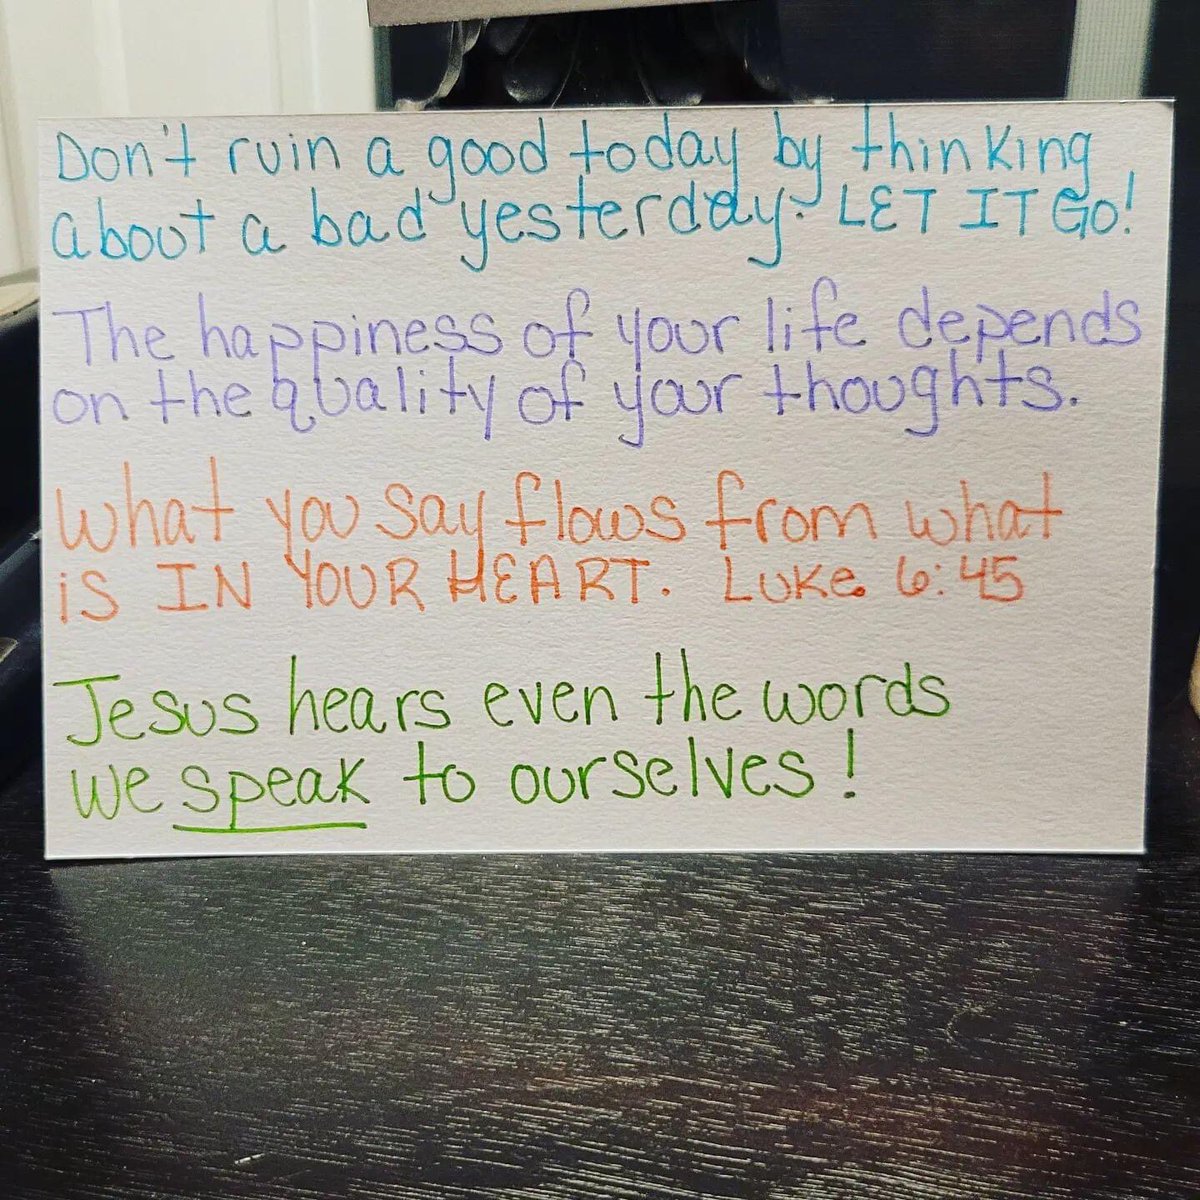 Don't ruin a good today by thinking
about a bad yesterday. LET IT GO!
The happiness of your life depends
on the quality of your thoughts.
What you say flows from what
is IN YOUR HEART. Luke 6:45
Jesus hears even the words
we speak to ourselves!